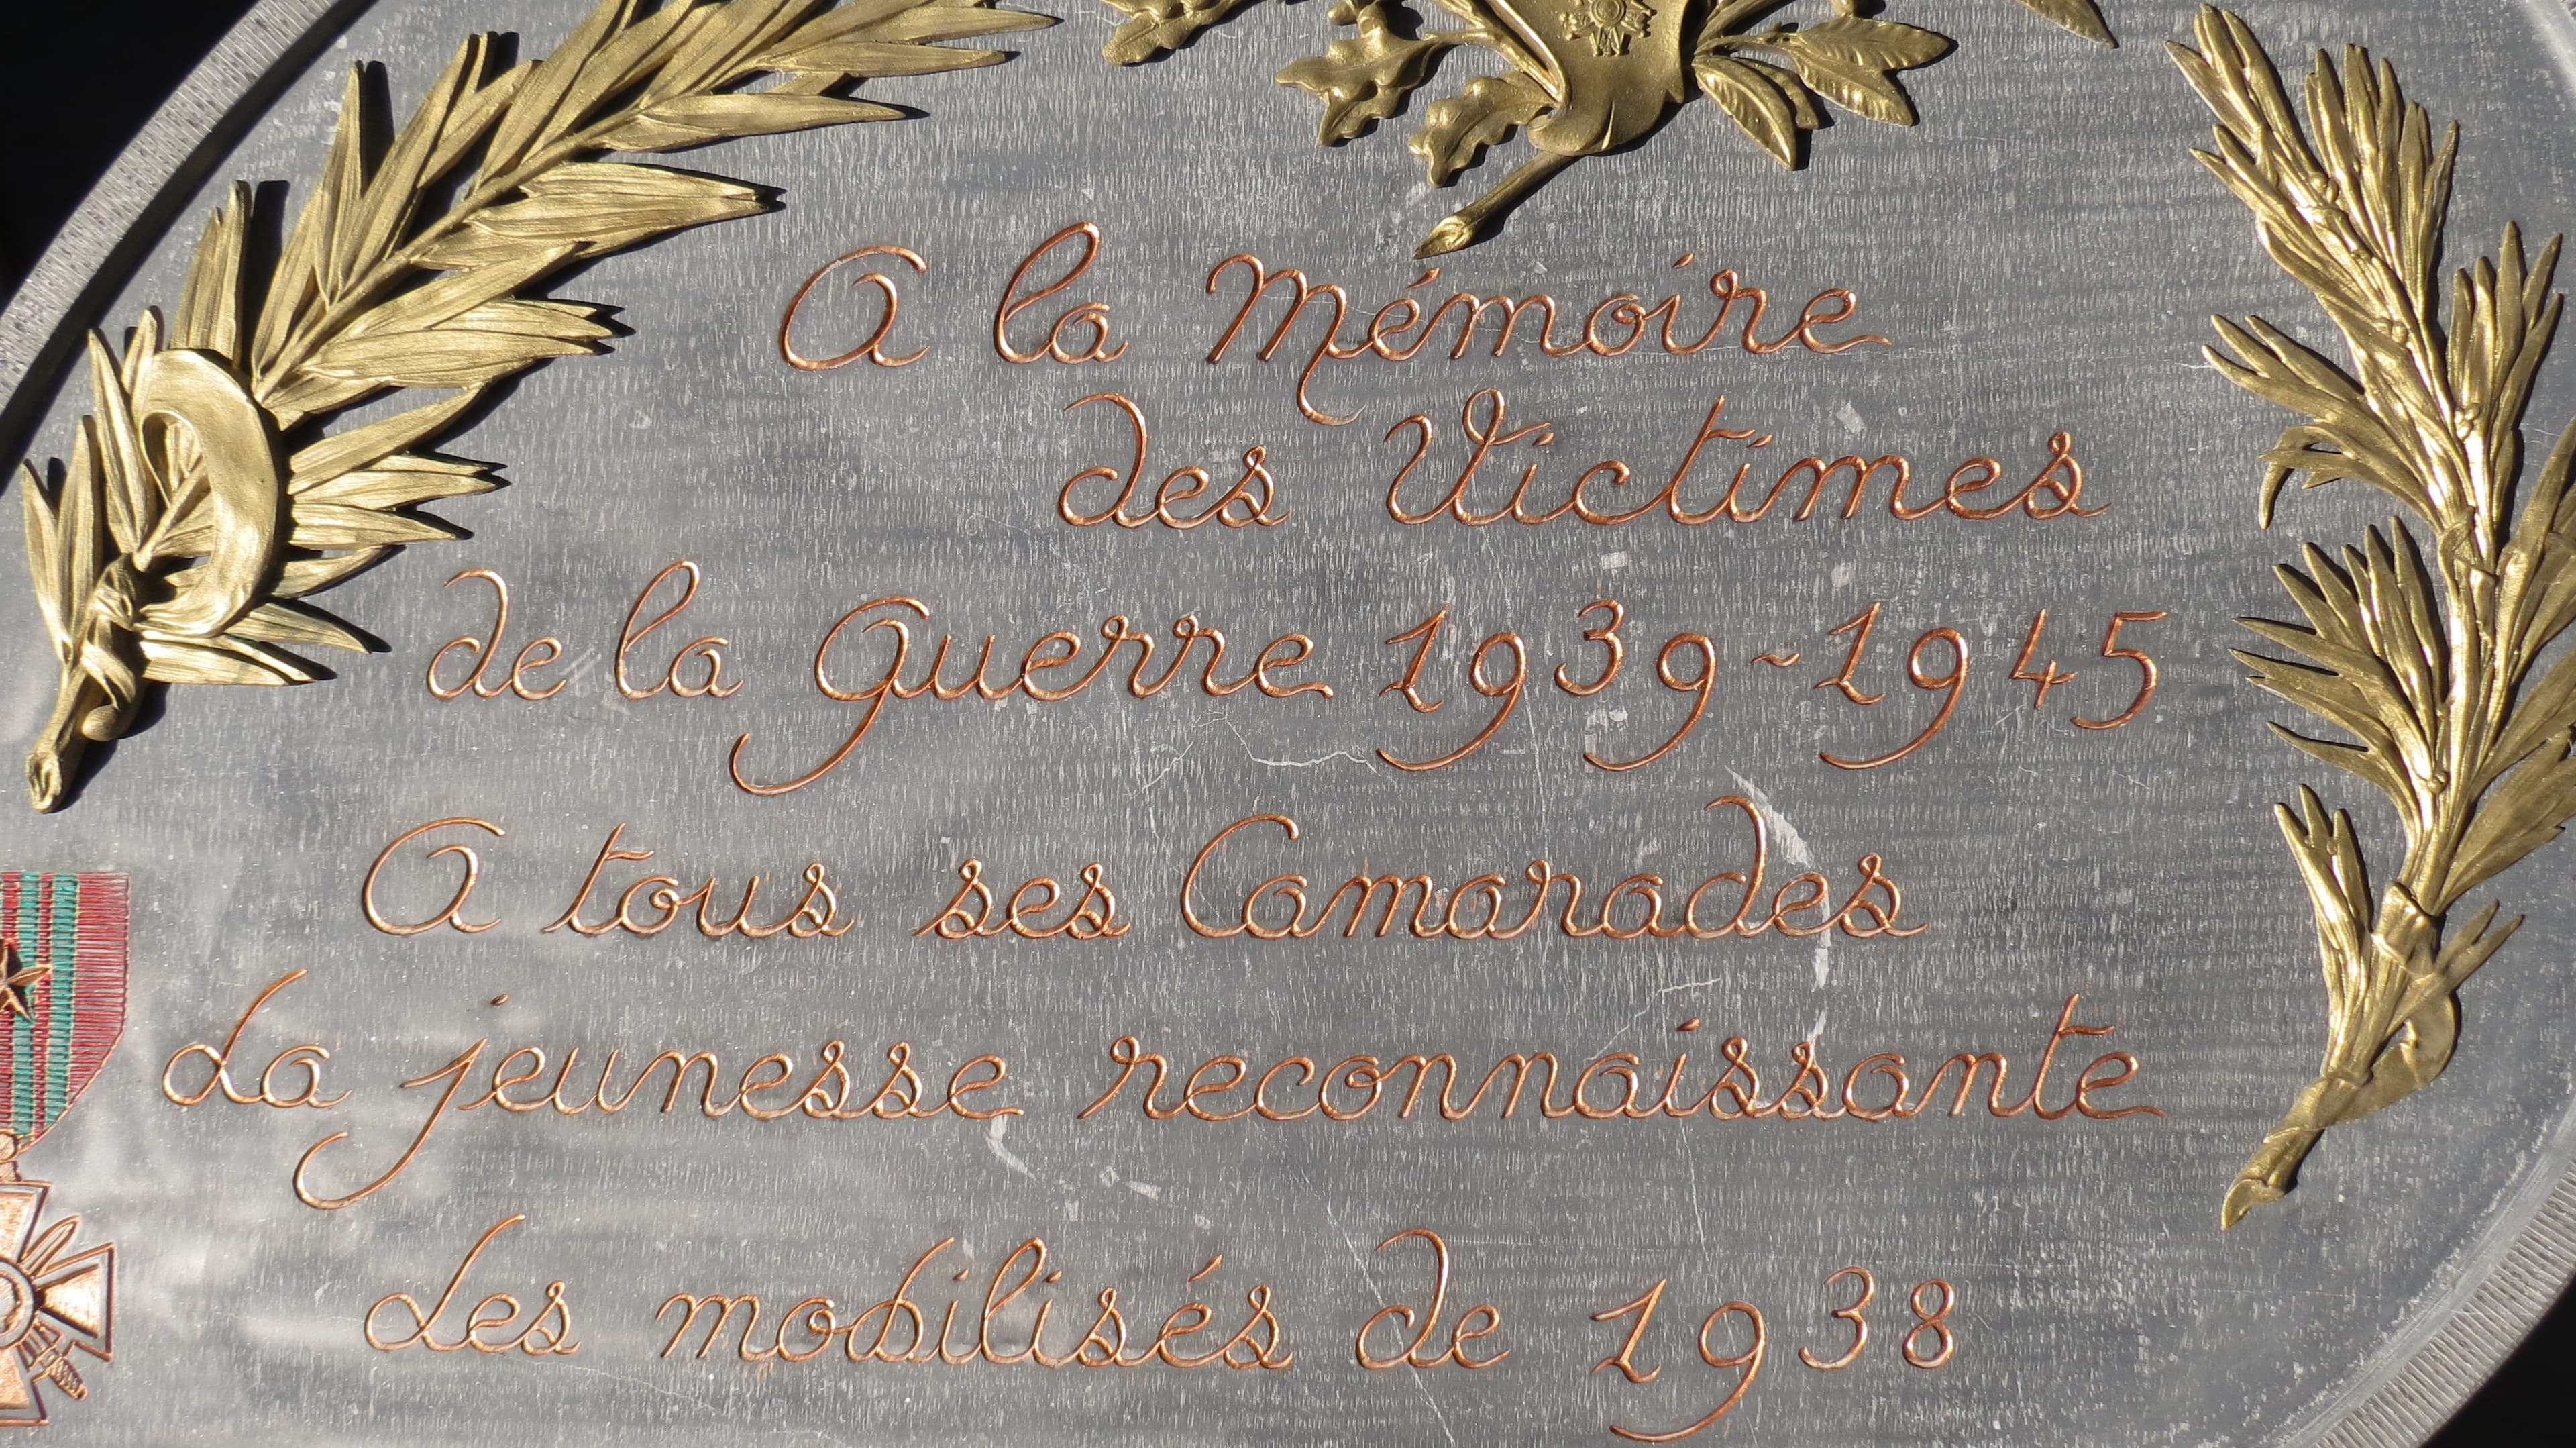 A la Mémoire
des Victimes
de la Guerre 1939-1945
A tous ses Camarades
La jeunesse reconnaissante
Les mobilisés de 1938